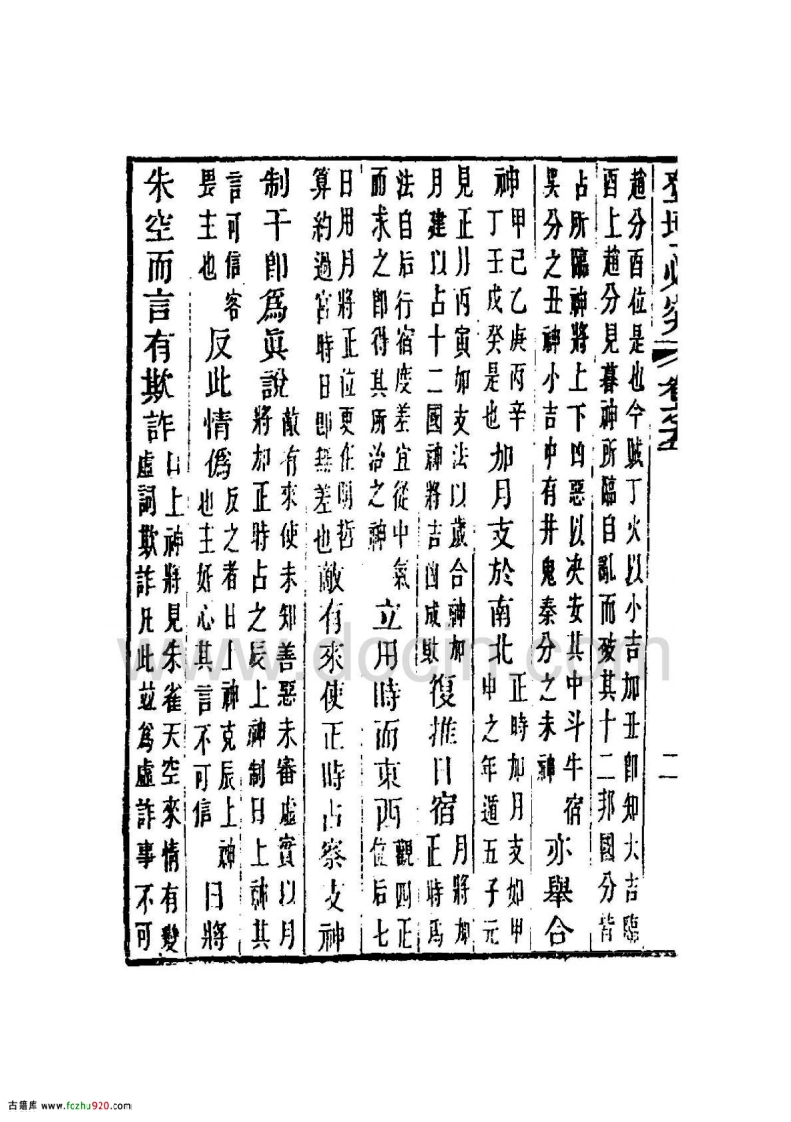 登壇必究 卷之五
二
趙分酉位是也今賊丁火以小吉加丑卽知大吉臨
酉上趙分見暮神所臨自亂而破其十二邦國分皆
占所臨神將上下凶惡以决安其中斗牛宿
吳分之丑神小吉中有井鬼秦分之未神
亦舉合
神
甲己乙庚丙辛
丁壬戊癸是也
加月支於南北
正時加月支如甲
申之年遁五子元
見正月丙寅如支法以歲合神加
月建以占十二國神將吉凶成敗
復推日宿
月將加
正時爲
法自后行宿度差宜從中氣
而求之卽得其所治之神
立用時而東西
觀四正
位后七
日用月將正位更在明哲
算約過宮時日卽無差也
敵有來使正時占察支神
制干卽爲眞說
敵有來使未知善惡未審虛實以月
將加正時占之辰上神制日上神其
言可信客
畏主也
反此情僞
反之者日上神克辰上神
也主好心其言不可信
日將
朱空而言有欺詐
日上神將見朱雀天空來情有變
虛詞欺詐凡此並爲虛詐事不可
www.docin.com
古籍库 www.fczhu920.com